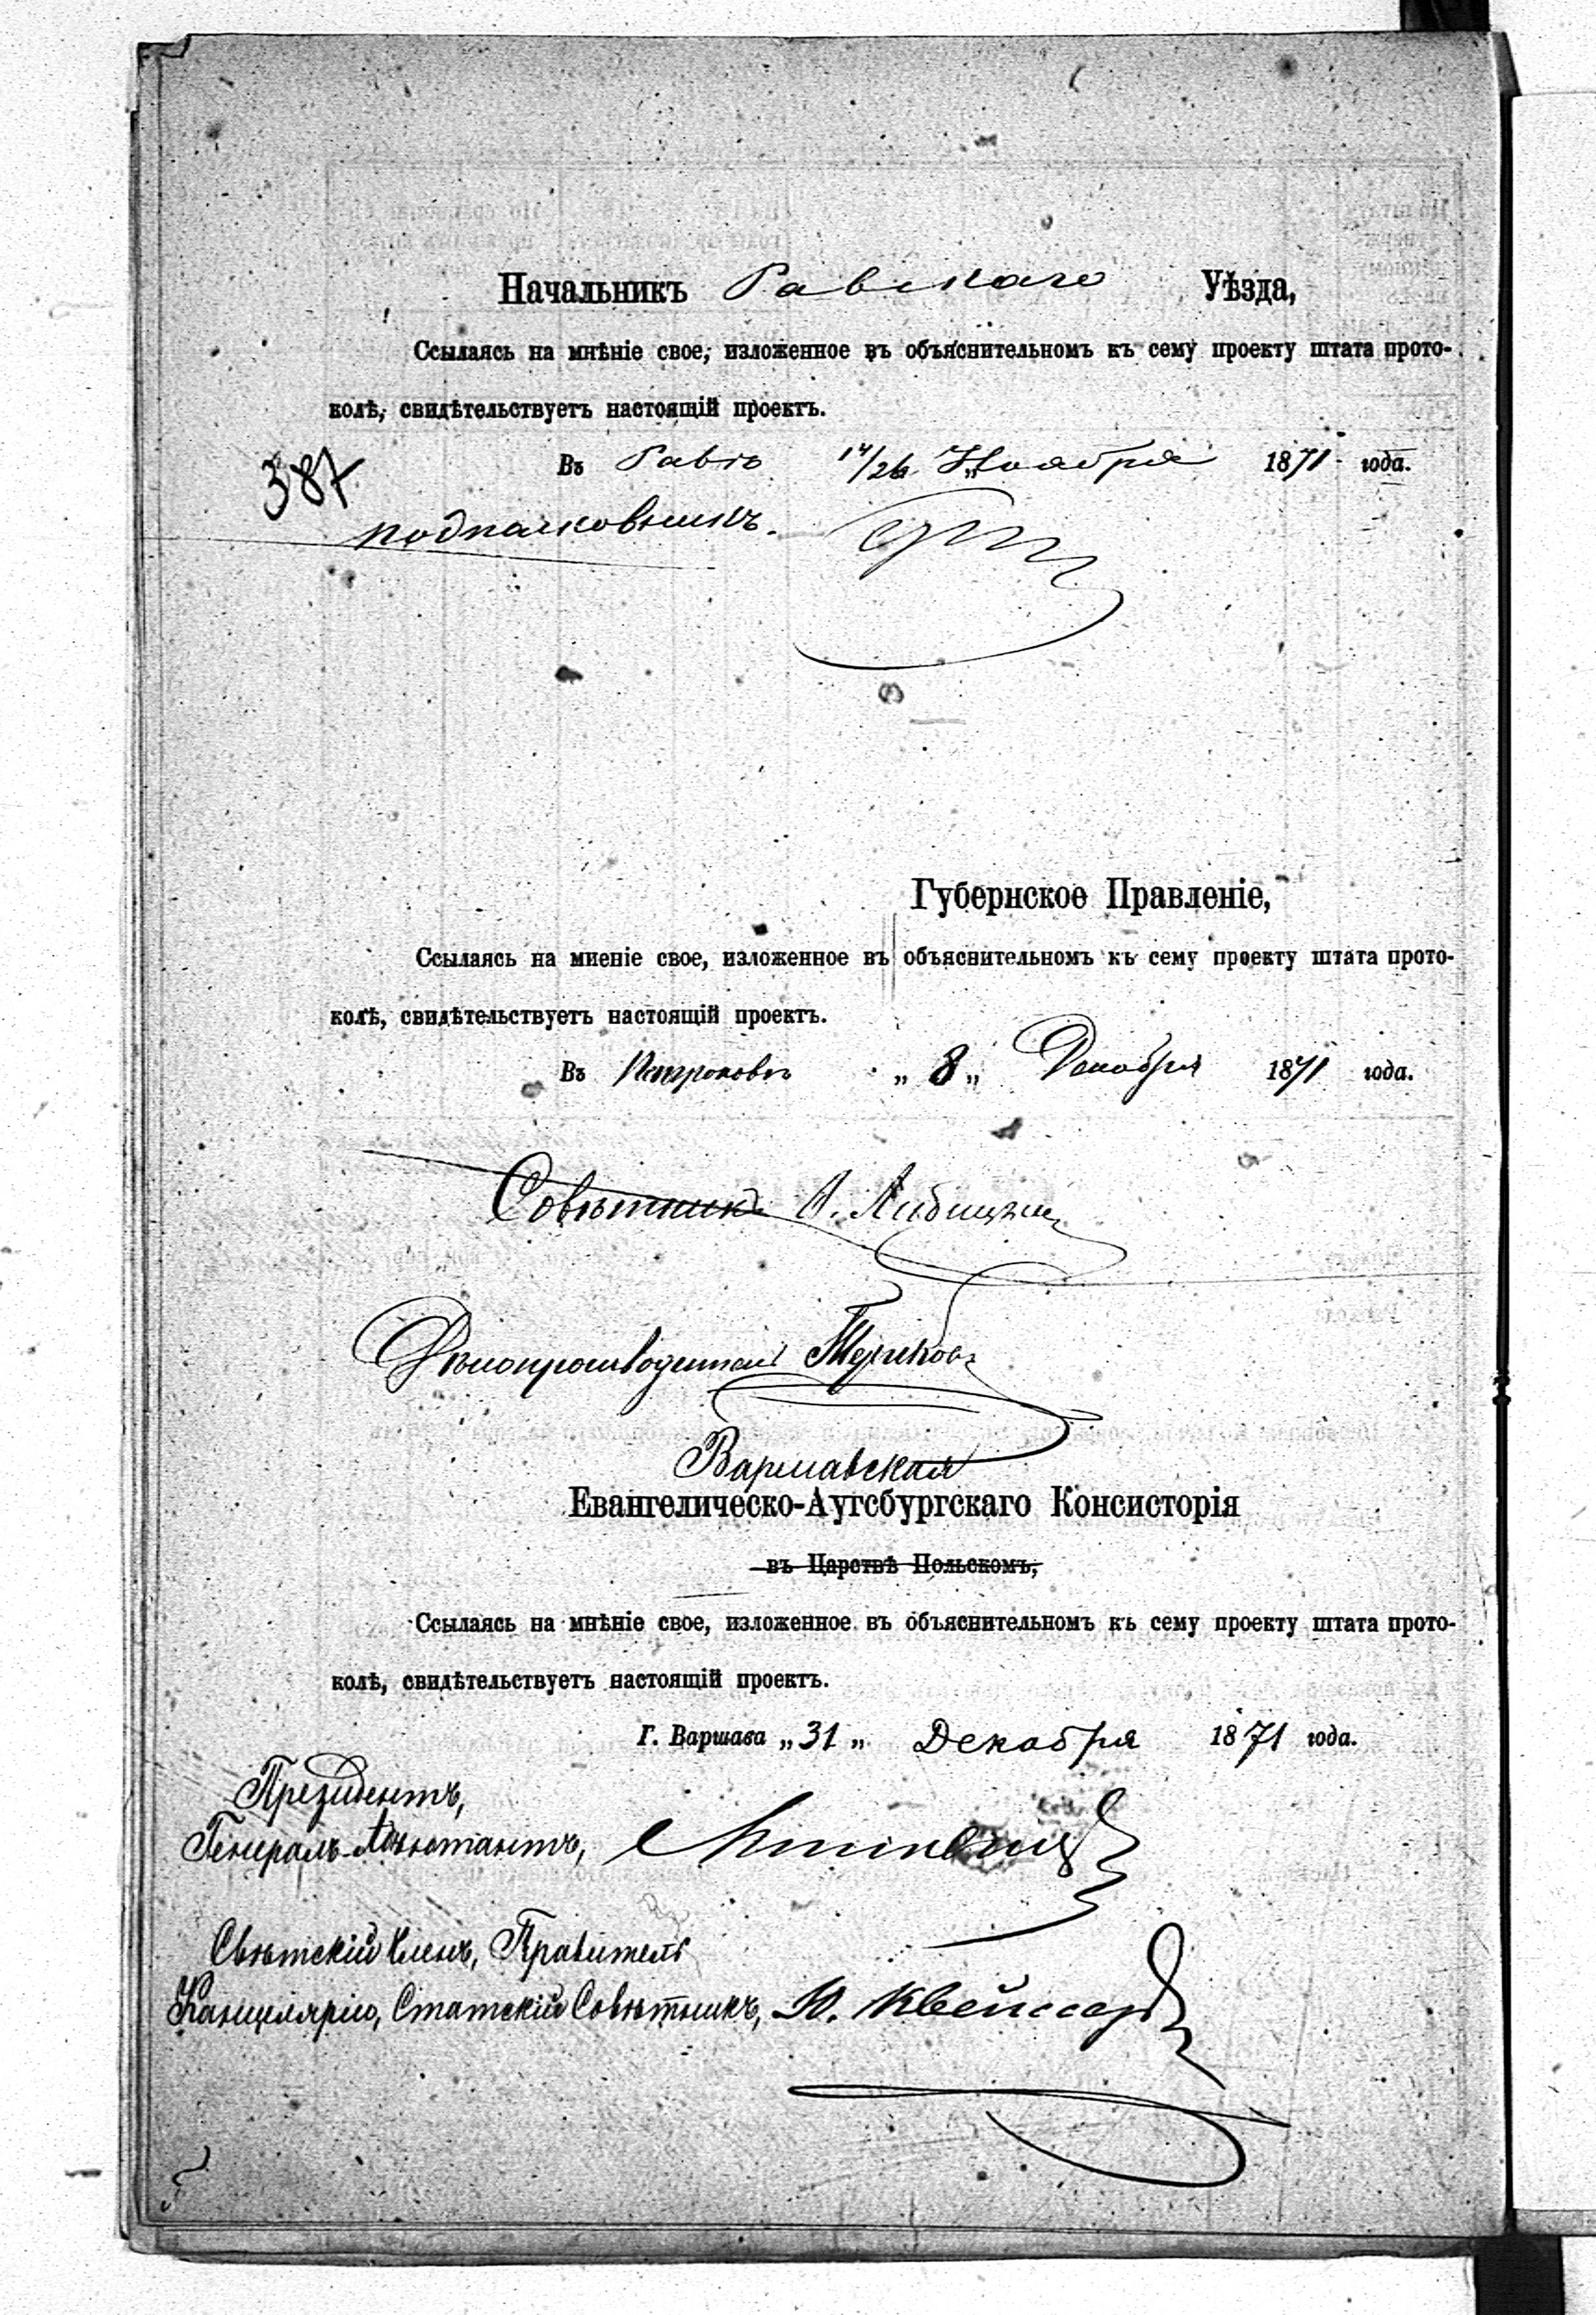 Начальникъ Равскаго Уѣзда,
Ссылаясь на мнѣніе свое, изложенное въ объяснительномъ къ сему проекту штата прото-
колѣ, свидѣтельствуетъ настоящій проектъ.
Въ Равѣ 14/26 Ноября 1871 года.
387
подполковникъ.
Губернское Правленіе,
Ссылаясь на мненіе свое, изложенное въ объяснительномъ къ сему проекту штата прото-
колѣ, свидѣтельствуетъ настоящій проектъ.
Въ Петроковѣ „ 8 „ Декабря 1871 года.
Совѣтникъ
Дѣлопроизводитель
Варшавская
Евангелическо-Аугсбургскаго Консисторія
въ Царствѣ Польскомъ,
Ссылаясь на мнѣніе свое, изложенное въ объяснительномъ къ сему проекту штата прото-
колѣ, свидѣтельствуетъ настоящій проектъ.
Г. Варшава „ 31 „ Декабря 1871 года.
Президентъ,
Генералъ-Адъютантъ,
Свѣтскій Членъ, Правитель
Канцеляріи, Статскій Совѣтникъ,